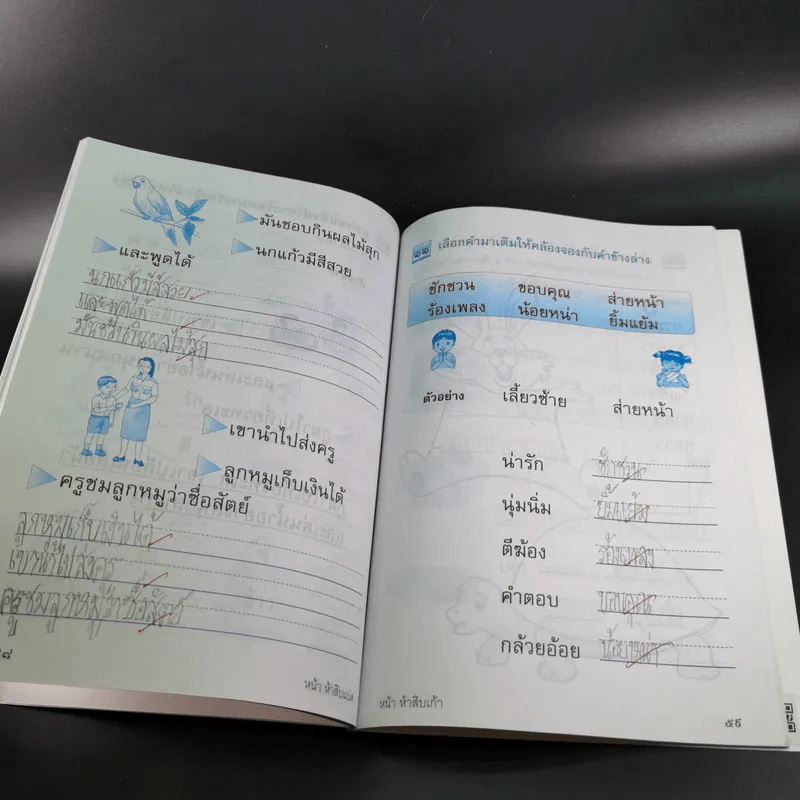 มันชอบกินผลไม้สุก
และพูดได้
นกแก้วมีสีสวย
นกแก้วมีสีสวย
และพูดได้
มันชอบกินผลไม้สุก
เขานำไปส่งครู
ลูกหมูเก็บเงินได้
ครูชมลูกหมูว่าซื่อสัตย์
ลูกหมูเก็บเงินได้
เขานำไปส่งครู
ครูชมลูกหมูว่าซื่อสัตย์
๘
หน้า ห้าสิบแปด
๒๒ เลือกคำมาเติมให้คล้องจองกับคำข้างล่าง
ชักชวน ขอบคุณ ส่ายหน้า
ร้องเพลง น้อยหน่า ยิ้มแย้ม
ตัวอย่าง เลี้ยวซ้าย ส่ายหน้า
น่ารัก ชักชวน
นุ่มนิ่ม ยิ้มแย้ม
ตีฆ้อง ร้องเพลง
คำตอบ ขอบคุณ
กล้วยอ้อย น้อยหน่า
หน้า ห้าสิบเก้า
๕๙